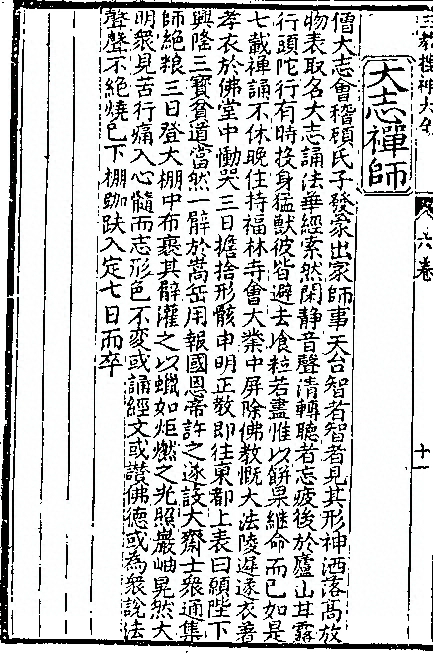 三教搜神大全
六卷
十一
大志禪師
僧大志會稽顧氏子發蒙出家師事天台智者智者見其形神洒落高放
物表取名大志誦法華經索然閑静音聲清轉聽者忘疲後於廬山甘露
行頭陀行有時投身猛獸彼皆避去飡粒若盡惟以餅果継命而已如是
七載禅誦不休晚住持福林寺會大業中屏除佛教慨大法陵遲遂衣著
孝衣於佛堂中慟哭三日擔捨形骸申明正教即往東都上表曰願陛下
興隆三寳貧道當然一臂於嵩岳用報國恩帝許之遂設大齋士衆通集
師絶粮三日登大棚中布裹其臂灌之以蠟如炬燃之光照巖岫晃然大
明衆見苦行痛入心髓而志形色不变或誦經文或讃佛德或為衆説法
聲聲不絶燒已下棚跏趺入定七日而卒